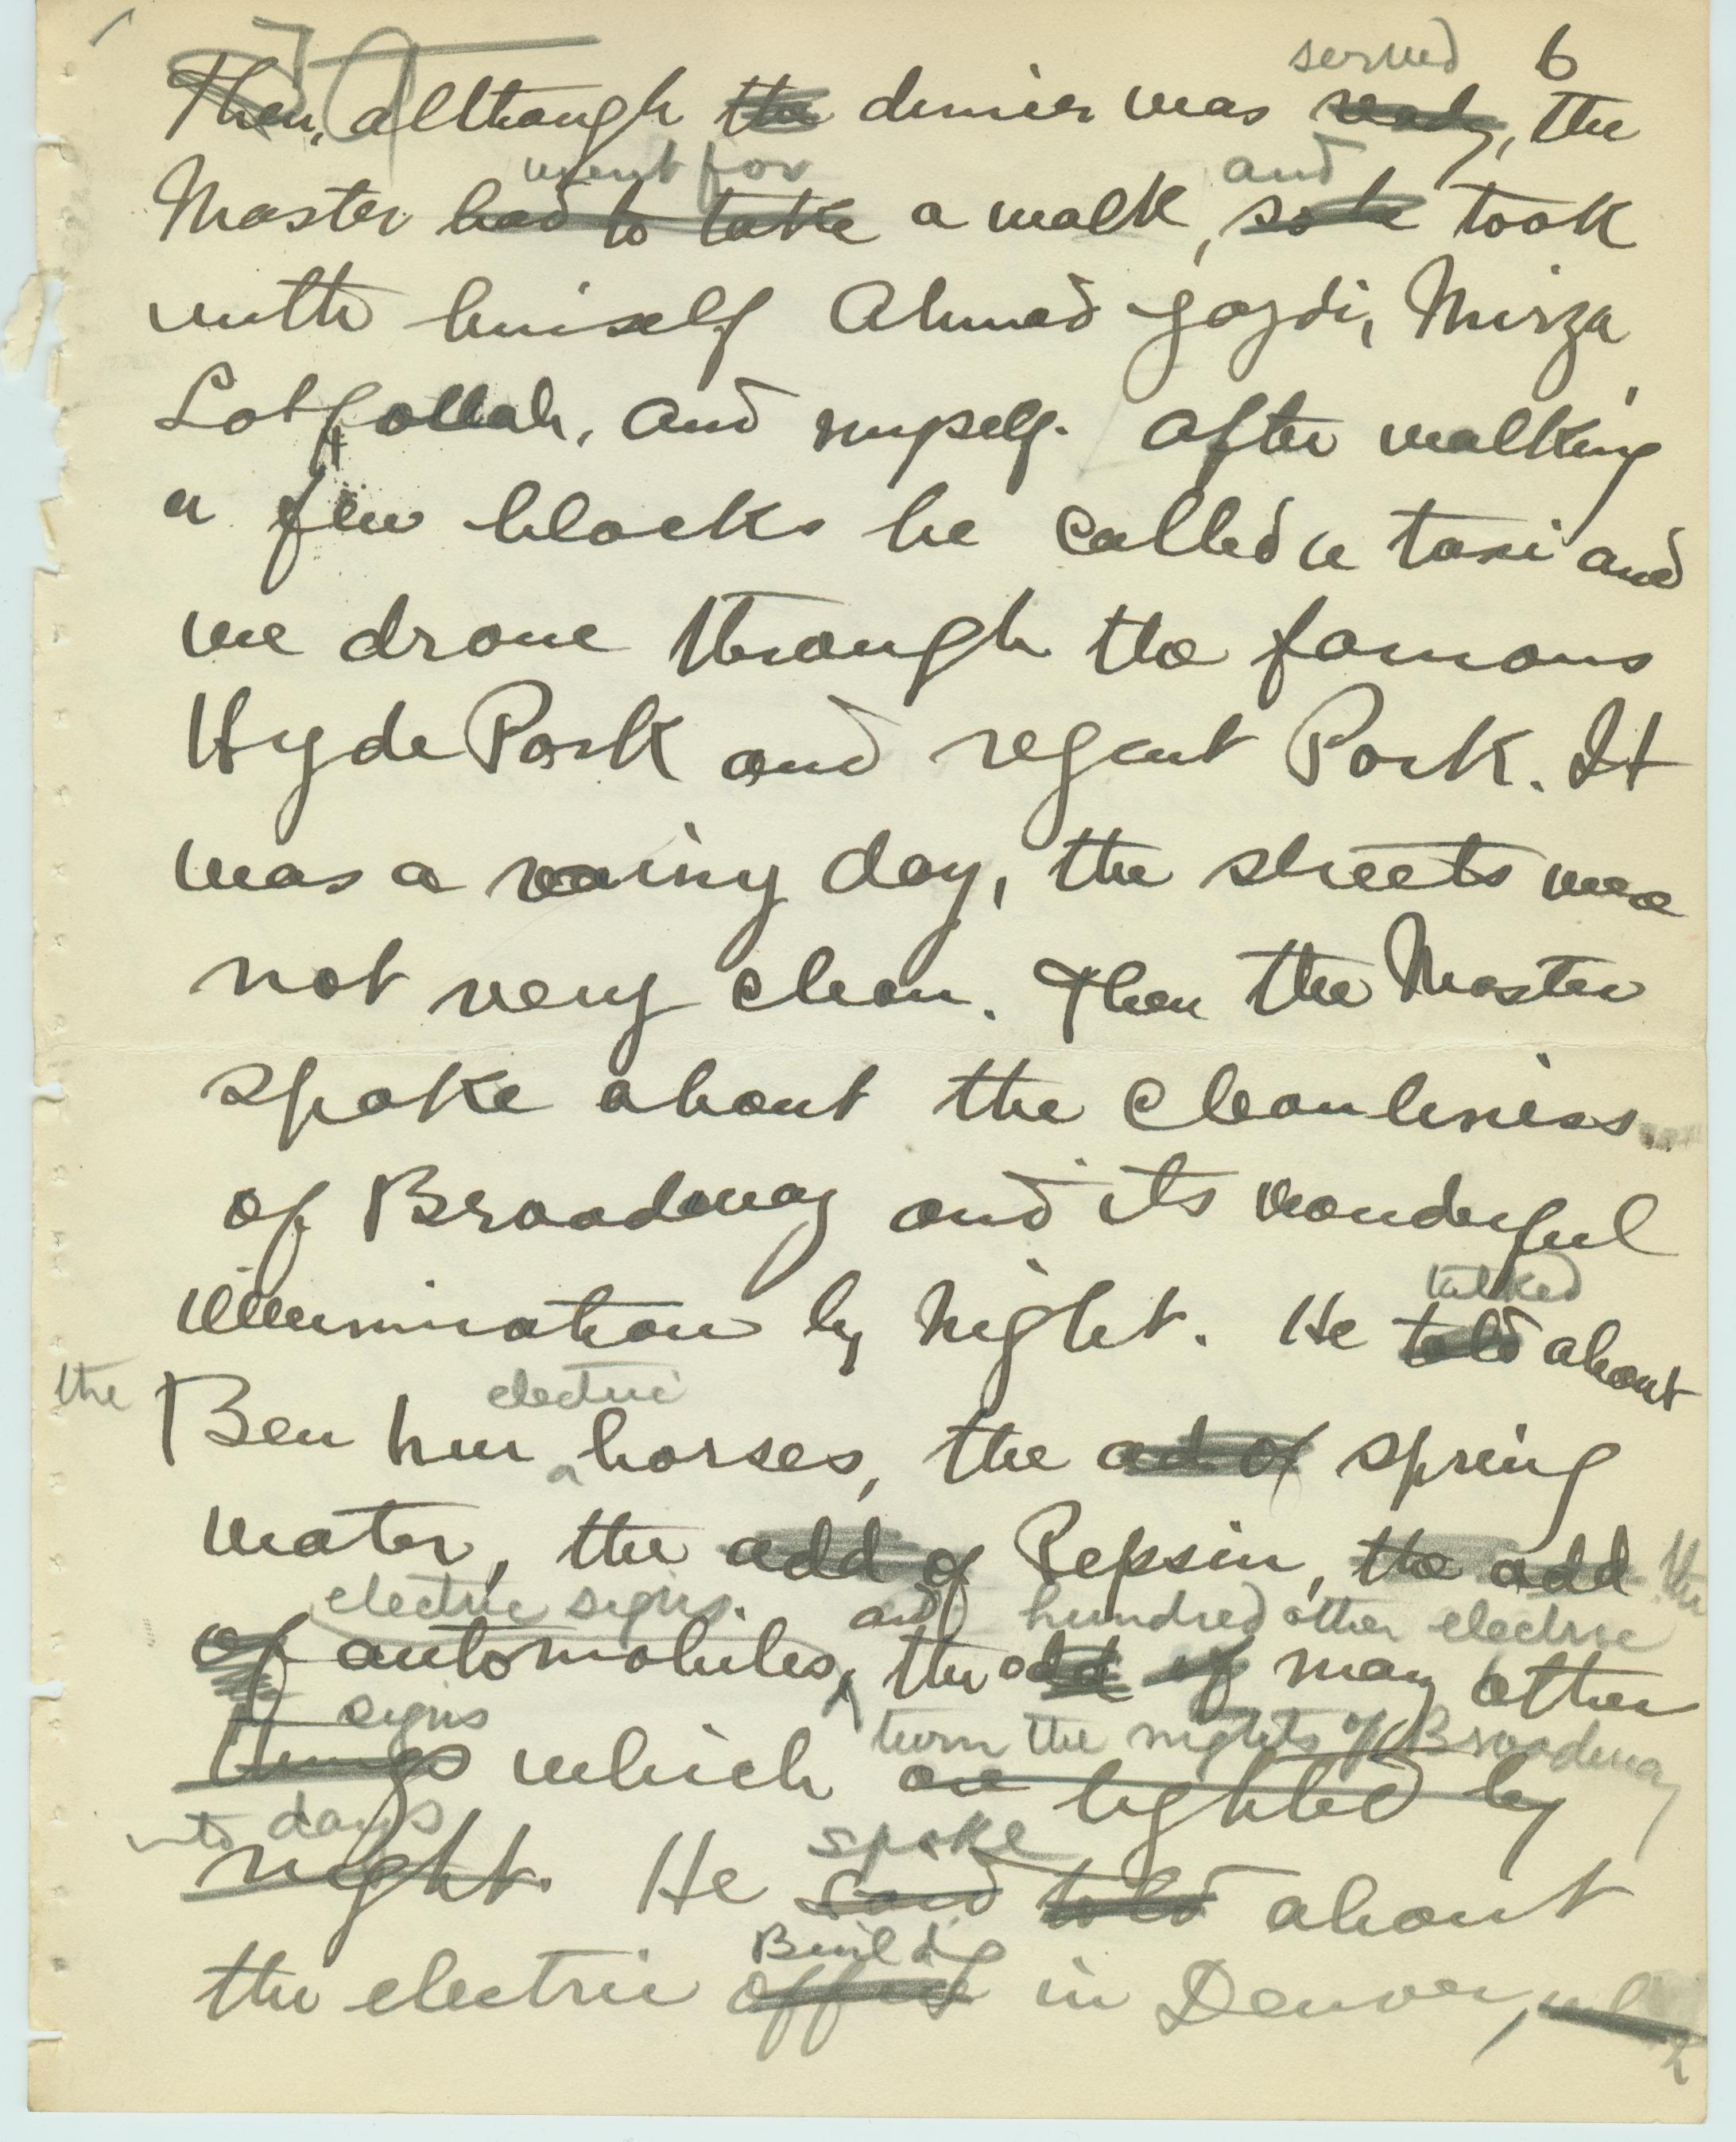 served 6
Then, although the dinner was ready, the
went for and
Master had to take a walk, so he took
with himself Ahmad Yazdi, Mirza
Lotfollah, and myself. After walking
a few blocks he called a taxi and
we drove through the famous
Hyde Park and regent Park. It
was a rainy day, the streets were
not very clean. Then the Master
spoke about the cleanliness
of Broadway and its wonderful
illumination by night. He told about
talked
the electric
Ben hur horses, the ad of spring
water, the add of Pepsin, the add the
electric signs. and hundred other electric
of automobiles, the add of many other
signs turn the nights of Broadway
things which are lighted by
into days spoke
night. He said told about
Buildg
the electric in Denver,